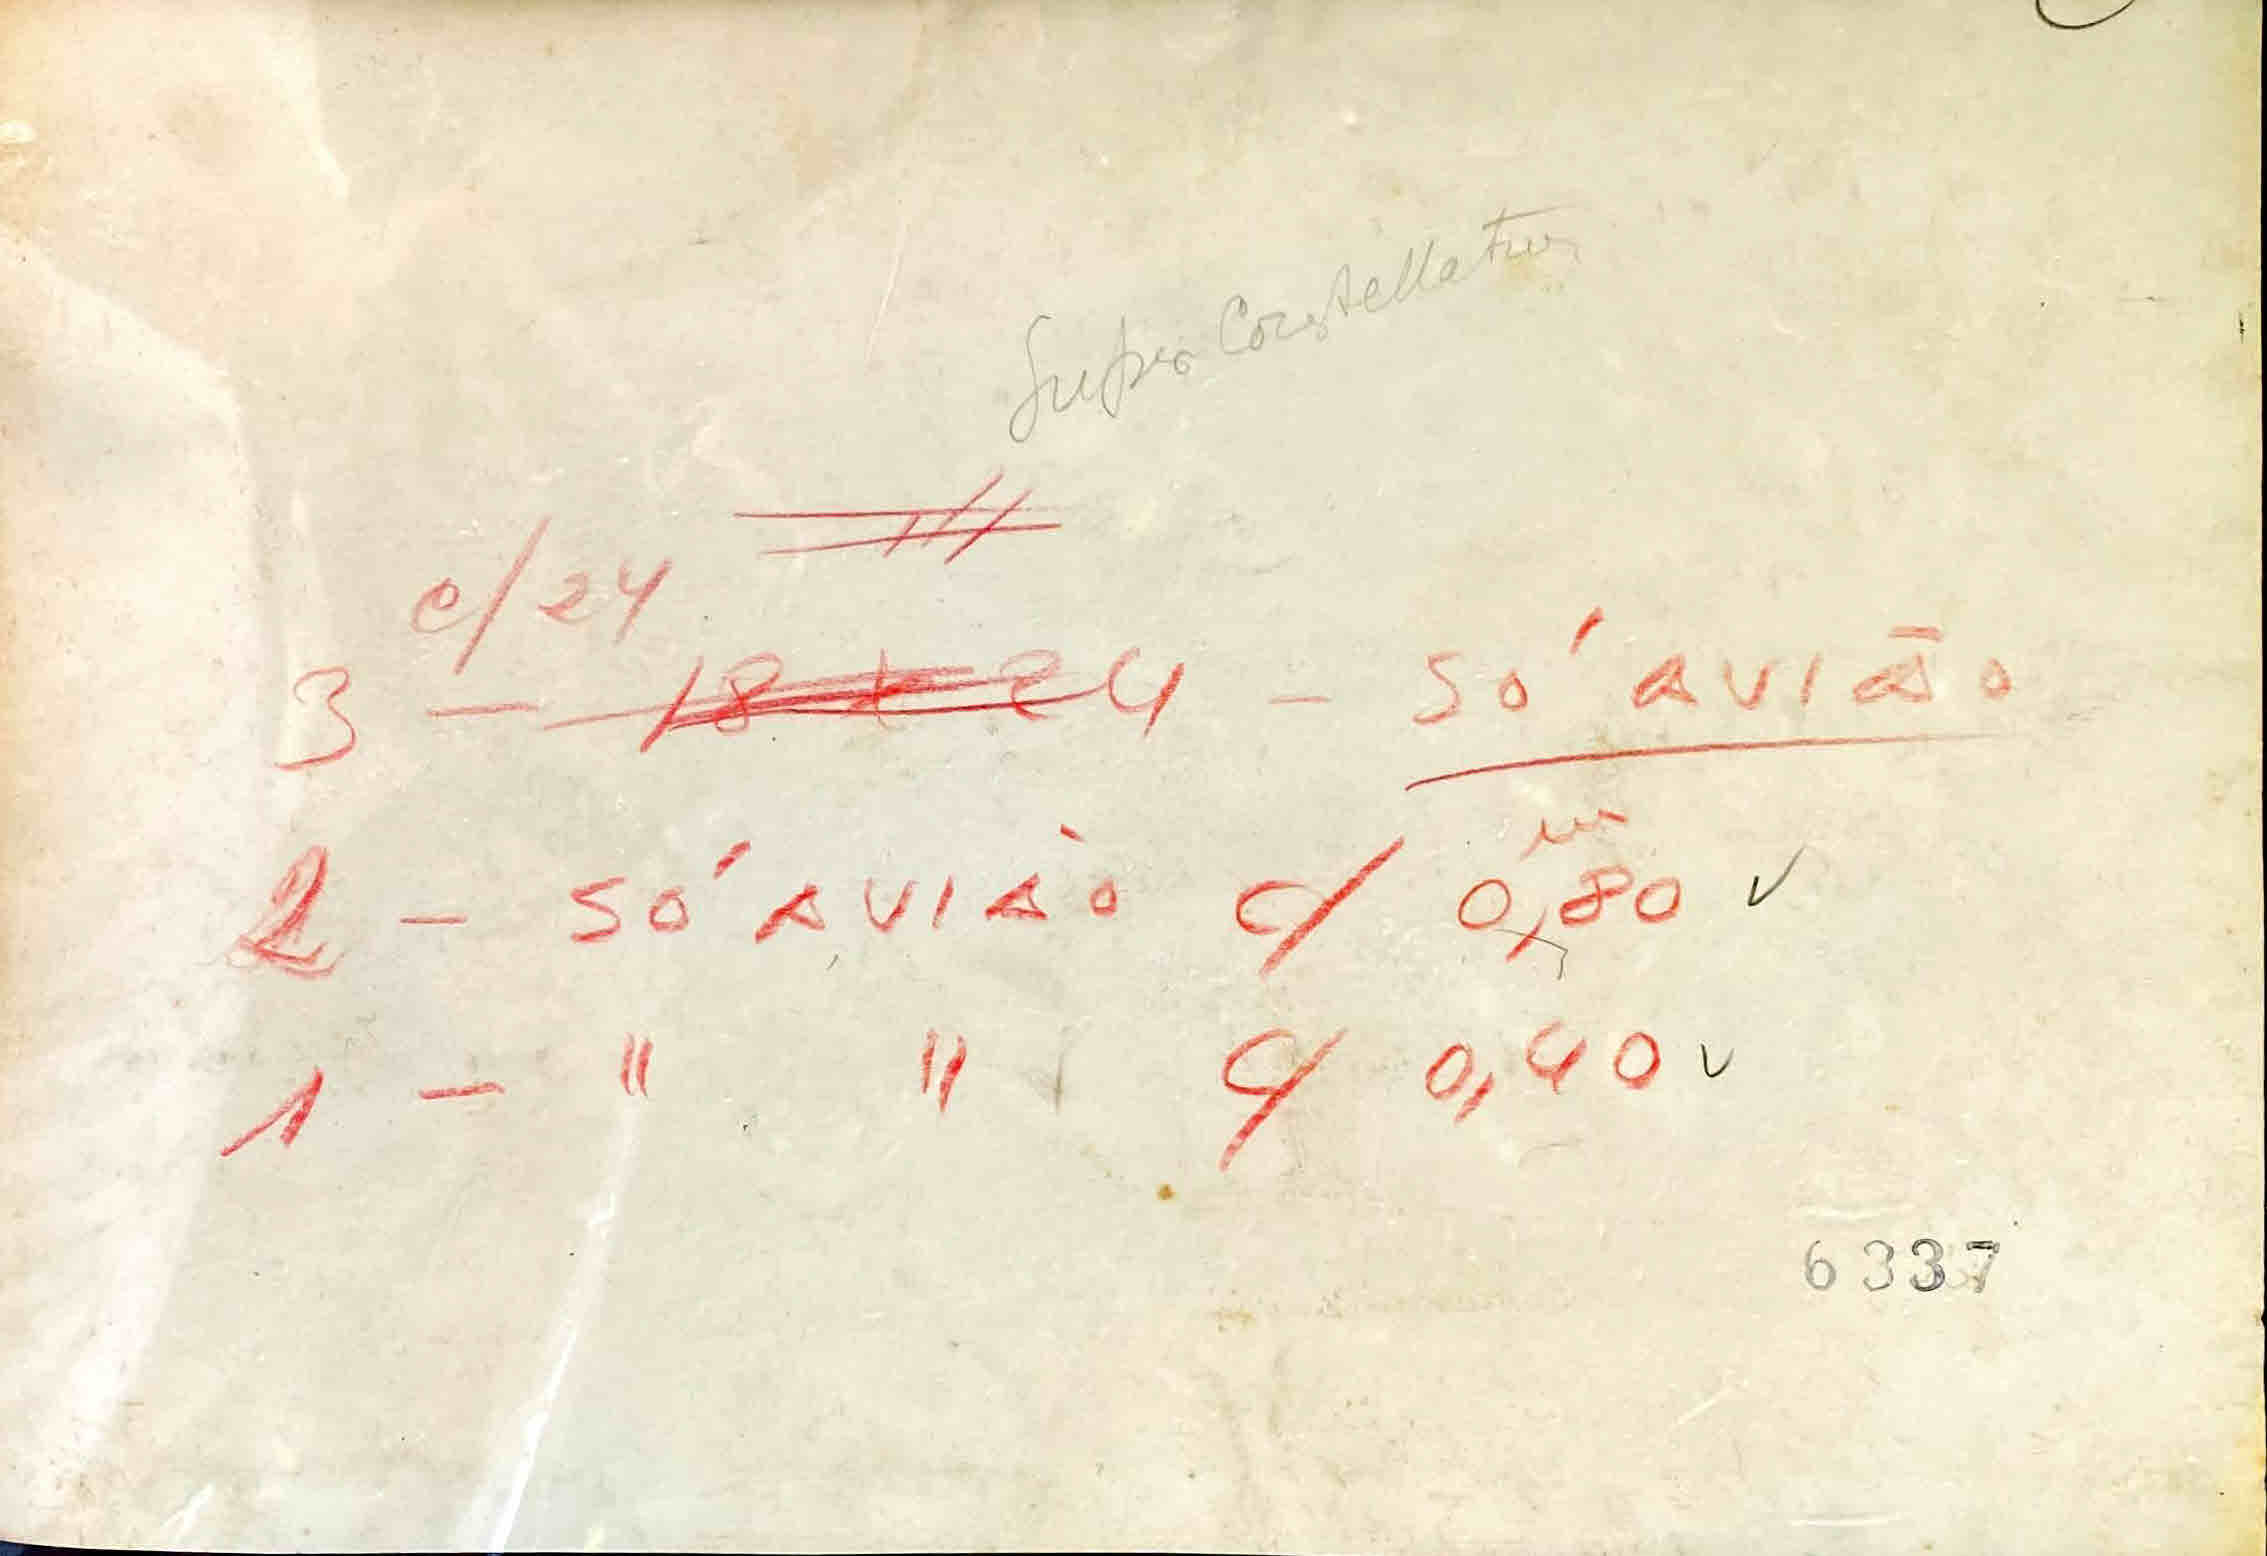 Super Constellation
c/24
3 - 18 x 24 - SÓ AVIÃO
m
2 - SÓ AVIÃO c/ 0,80 ✓
1 - " " c/ 0,40 ✓
6337